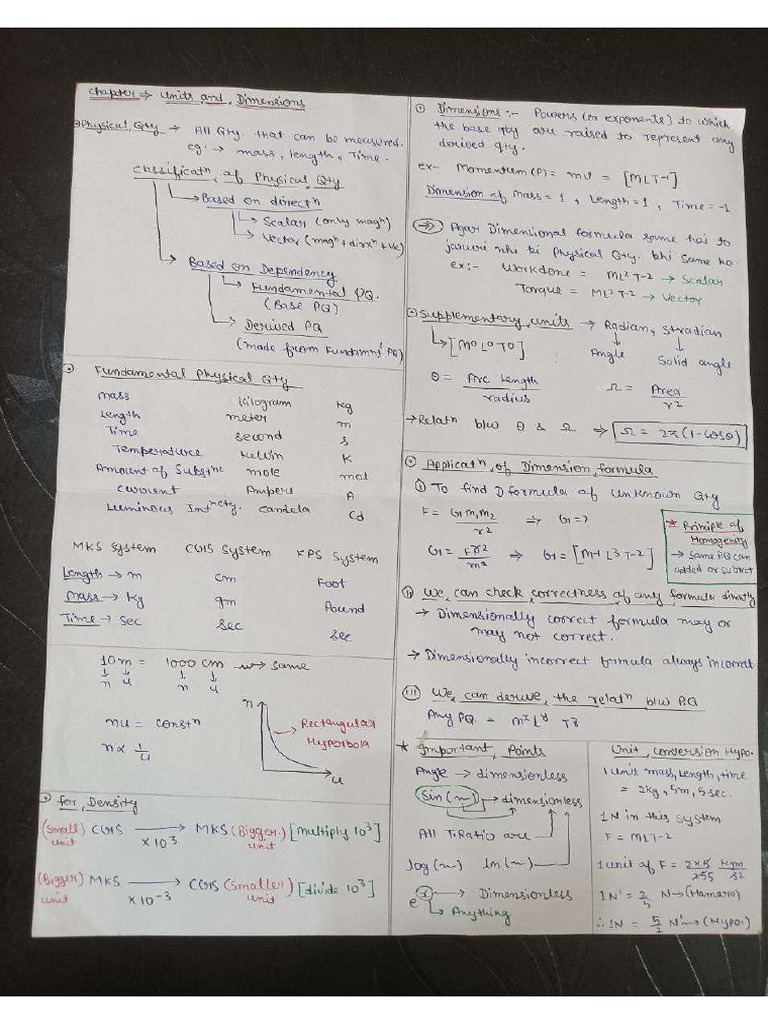 Chapter → Units and Dimensions
→ Physical Qty → All Qty. that can be measured.
eg. → mass, length, Time.
Classificatⁿ of Physical Qty
→ Based on directⁿ
→ Scalar (only magⁿ)
→ Vector (magⁿ + dirxⁿ + ve)
→ Based on Dependency
→ Fundamental PQ.
(Base PQ)
→ Derived PQ
(made from Fundamnt' PQ)
Fundamental Physical Qty
Mass Kilogram Kg
Length meter m
Time second s
Temperature Kelvin K
Amount of Substne mole mol
Current Ampere A
Luminous Intⁿety. candela Cd
MKS System CGS System FPS System
Length → m cm Foot
Mass → Kg gm Pound
Time → sec sec sec
10m = 1000 cm → same
↓ ↓ ↓ ↓
n u n u
nu = constⁿ
n ∝ 1/u
n
u
→ Rectangular
Hyporbola
for Density
(Small) CGS → MKS (Bigger) [multiply 10³]
unit × 10³ unit
(Bigger) MKS → CGS (smaller) [divide 10³]
unit × 10⁻³ unit
Dimensions :- Powers (or exponents) to which
the base qty are raised to represent any
derived qty.
ex- Momentum (P) = mv = [MLT-1]
Dimension of Mass = 1 , Length = 1 , Time = -1
Agar Dimensional formula same hai to
jaruri nhi ki Physical Qty. bhi same ho.
ex:- Workdone = ML²T-2 → Scalar
Torque = ML²T-2 → Vector
Supplementary units → Radian, Stradian
→ [M⁰L⁰T⁰] ↓ Angle ↓ Solid angle
θ = Arc Length/radius Ω = Area/r²
→ Relatⁿ b/w θ & Ω → Ω = 2π(1-cosθ)
Applicatⁿ of Dimension formula
(i) To find D formula of unknown Qty
F = G m₁m₂/r² ⇒ G = ?
G = Fr²/m² ⇒ G = [M-1 L3 T-2]
* Principle of
Homogenity
→ Same PQ can
added or subtrct
(ii) We can check correctness of any formula dimtly
→ Dimensionally correct formula may or
may not correct.
→ Dimensionally incorrect formula always incorrect
(iii) We can derive the relatⁿ b/w P.Q
Any PQ. = MˣLʸ Tz
* Important Points
Angle → dimensionless
Sin(~) → dimensionless
All T.Ratio are
log(~) ln(~)
e^x → Dimensionless
→ Anything
Unit conversion Hypo.
1 Unit mass, length, time
= 2kg, 5m, 5sec.
1N in this system
F = MLT-2
1 unit of F = 2×5/5×5 Kgm/s²
1N' = 2/5 N → (Hamara)
∴ 1N = 5/2 N' → (Hypo.)